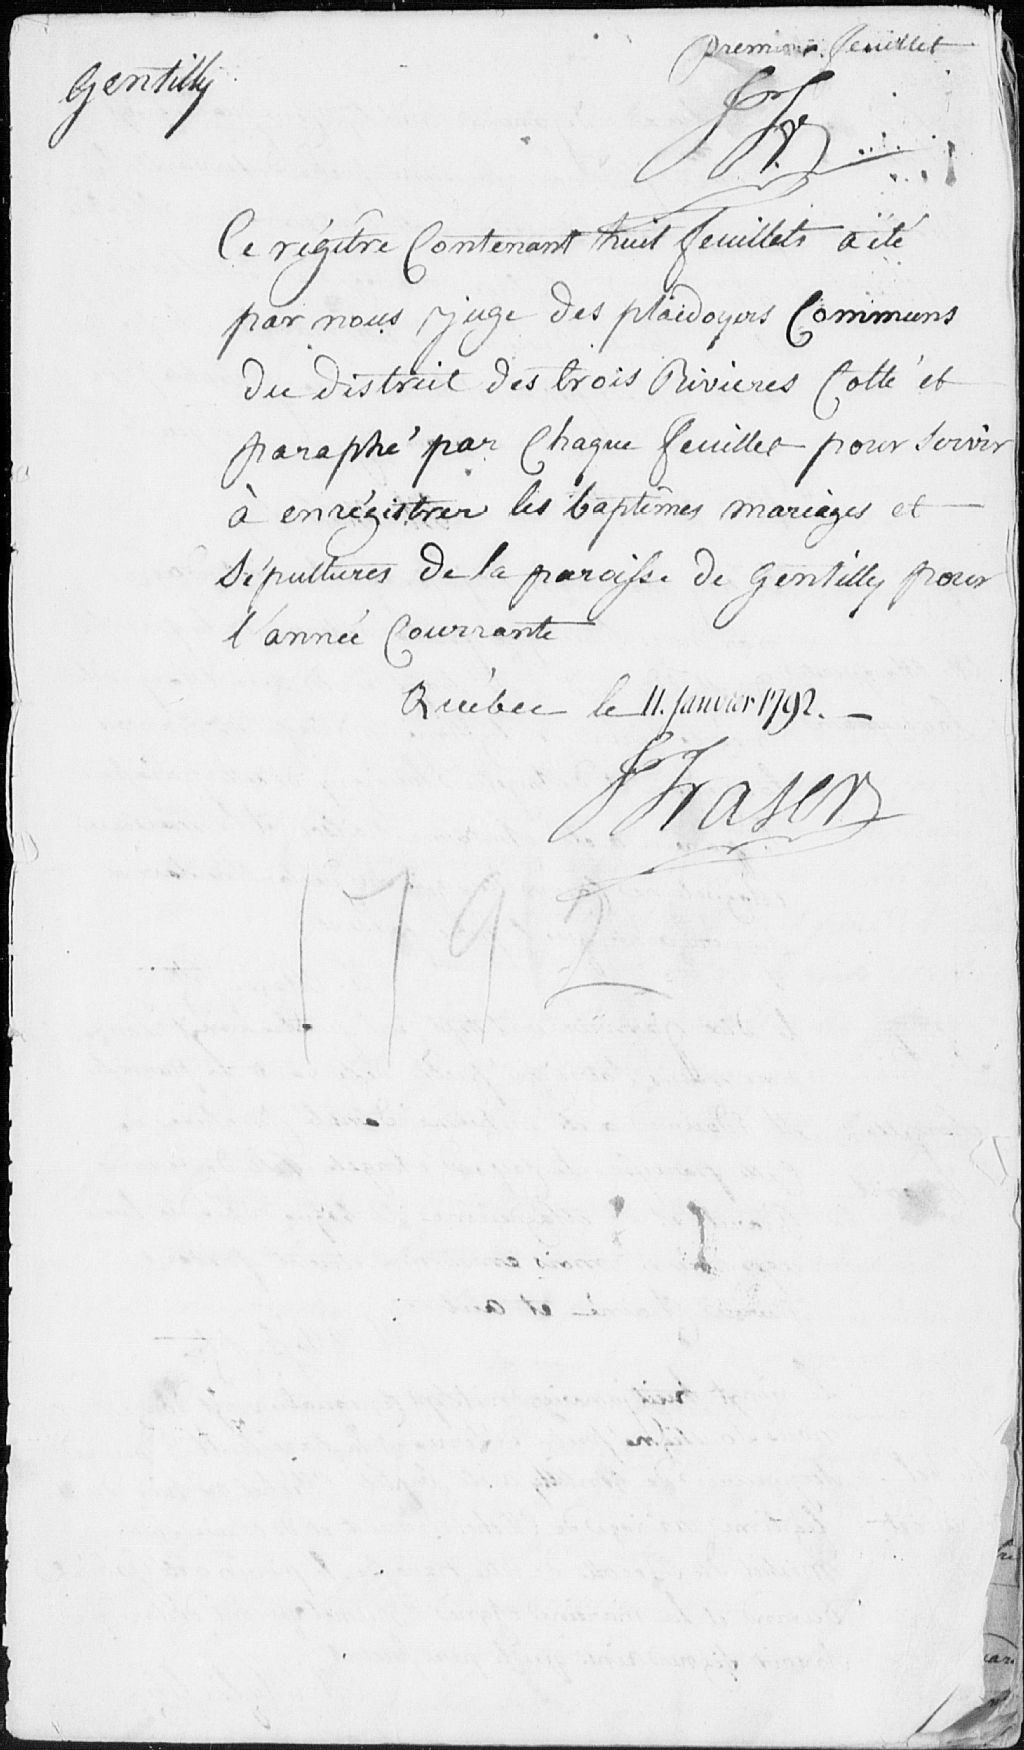 Gentilly
premier feuillet
JFr
Ce régître Contenant huit feuillets a été
par nous juge des plaidoyers Communs
du district des trois Rivieres Cotté et
paraphé par Chaque feuillet pour servir
à enrégistrer les baptêmes mariages et
Sépultures de la paroisse de Gentilly pour
l'année Courrante
Québec le 11. Janvier 1792. —
JFraser
1792